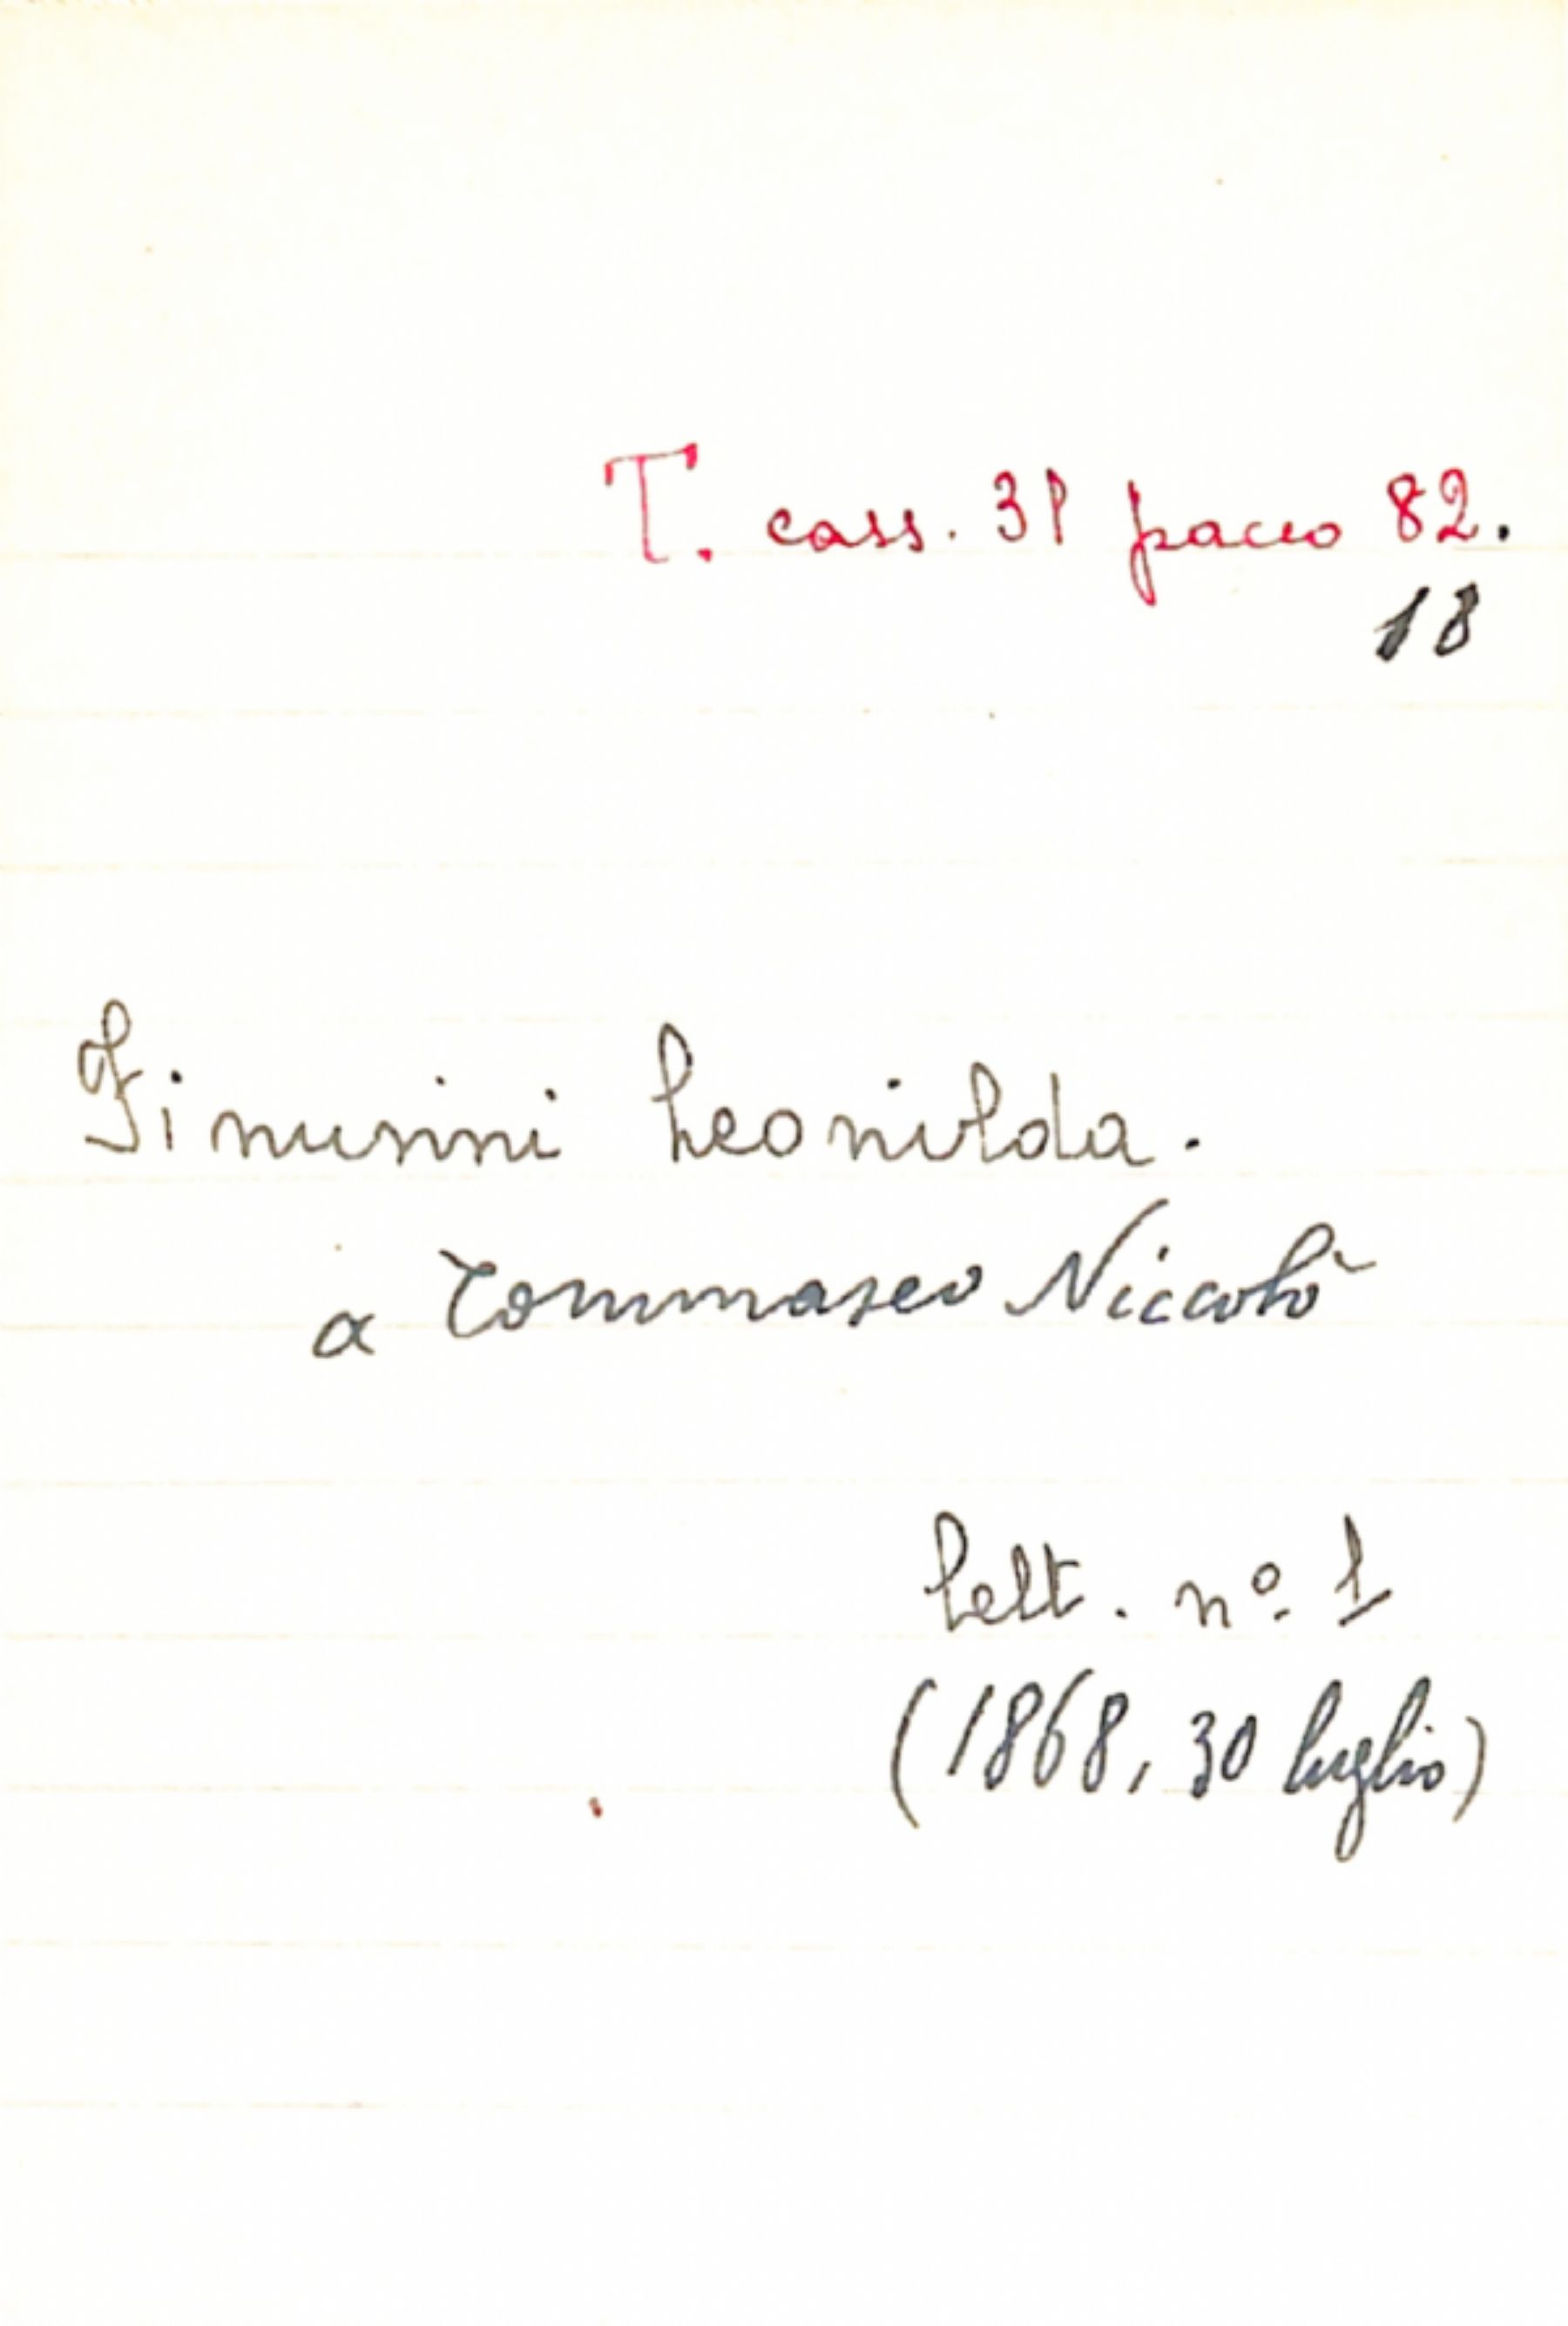 T. cass. 31 pacco 82.
18
Leonilda.
a Tommaseo Niccolò
Lett. nº 1
(1868, 30 luglio)